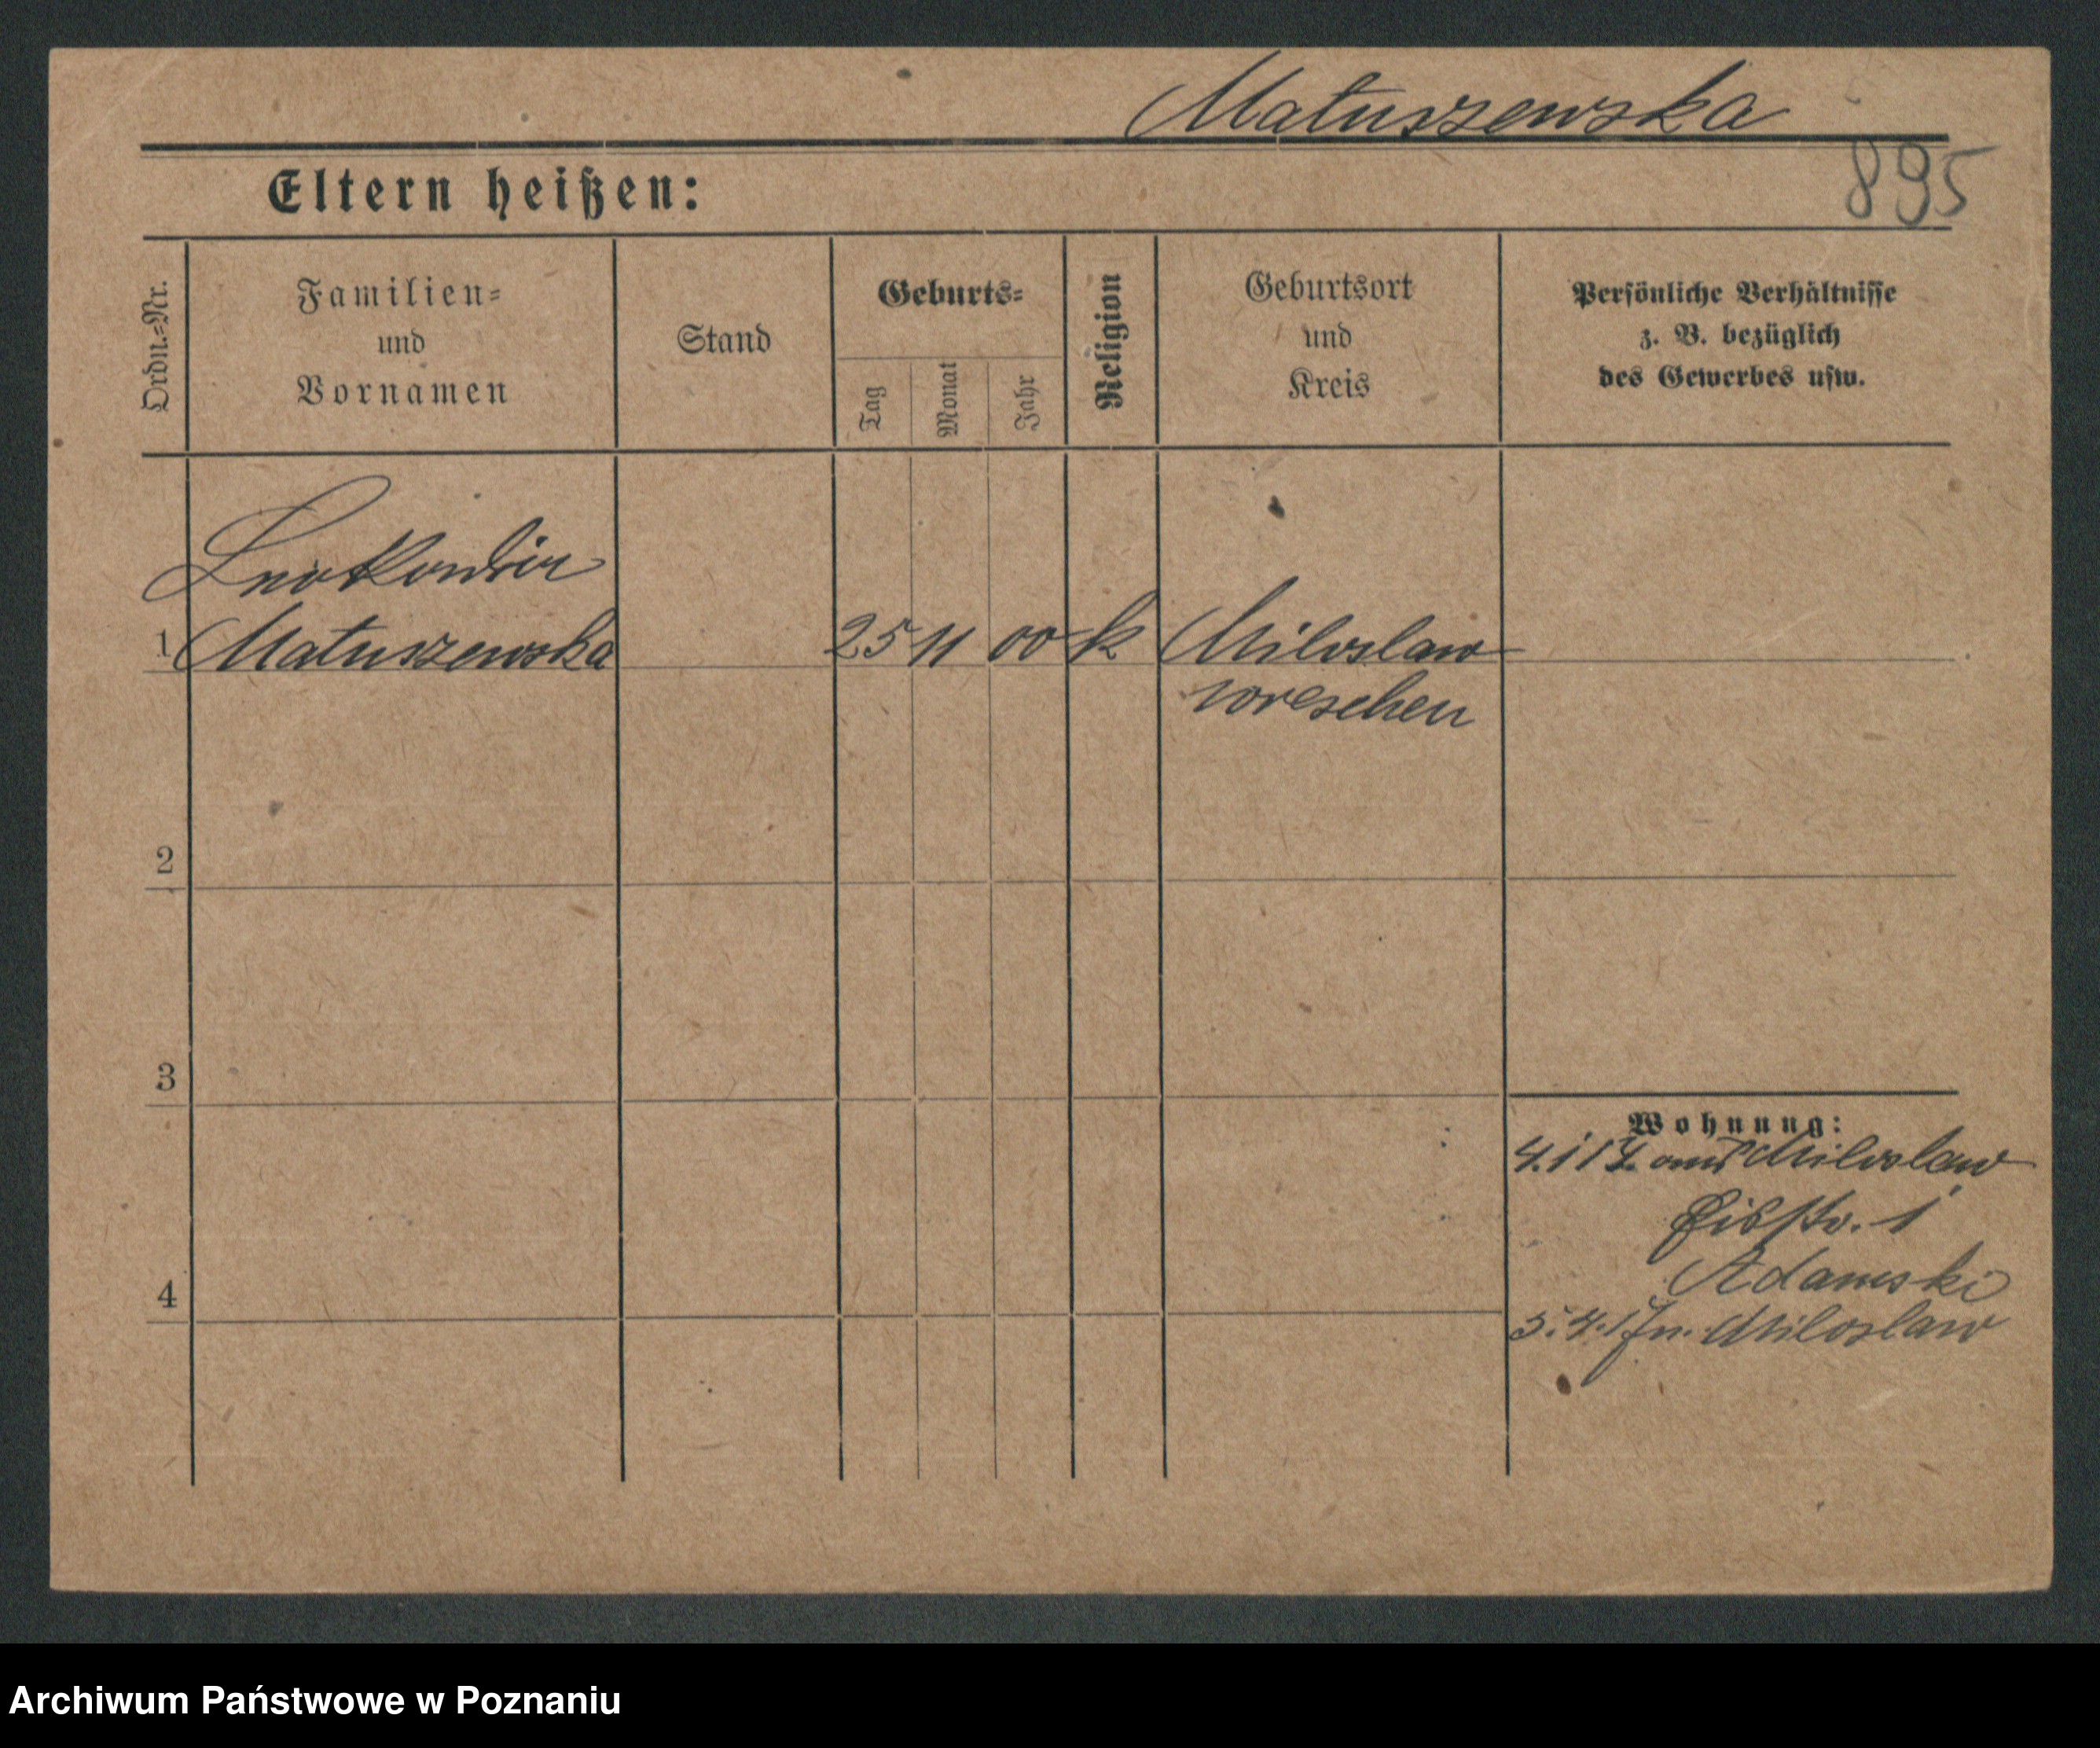 Matuszewska
895
Eltern heißen:
Ordn.-Nr.
Familien-
und
Vornamen
Stand
Geburts-
Tag
Monat
Jahr
Religion
Geburtsort
und
Kreis
Persönliche Verhältnisse
z. B. bezüglich
des Gewerbes usw.
1 Matuszewska 25 11 00 k Miloslaw
wreschen
2
3
4
Wohnung:
Miloslaw
1
Adamski
5.4.17 n. Miloslaw
Archiwum Państwowe w Poznaniu